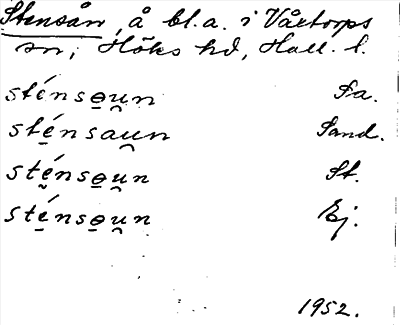 Stensån, å bl.a. i Våxtorps
sn, Höks hd, Hall. l.
sténsə̱u̯n Fa.
sté̱nsau̯n Sand.
sté̱nsə̱u̯n St.
sté̱nsə̱u̯n Ej.
1952.